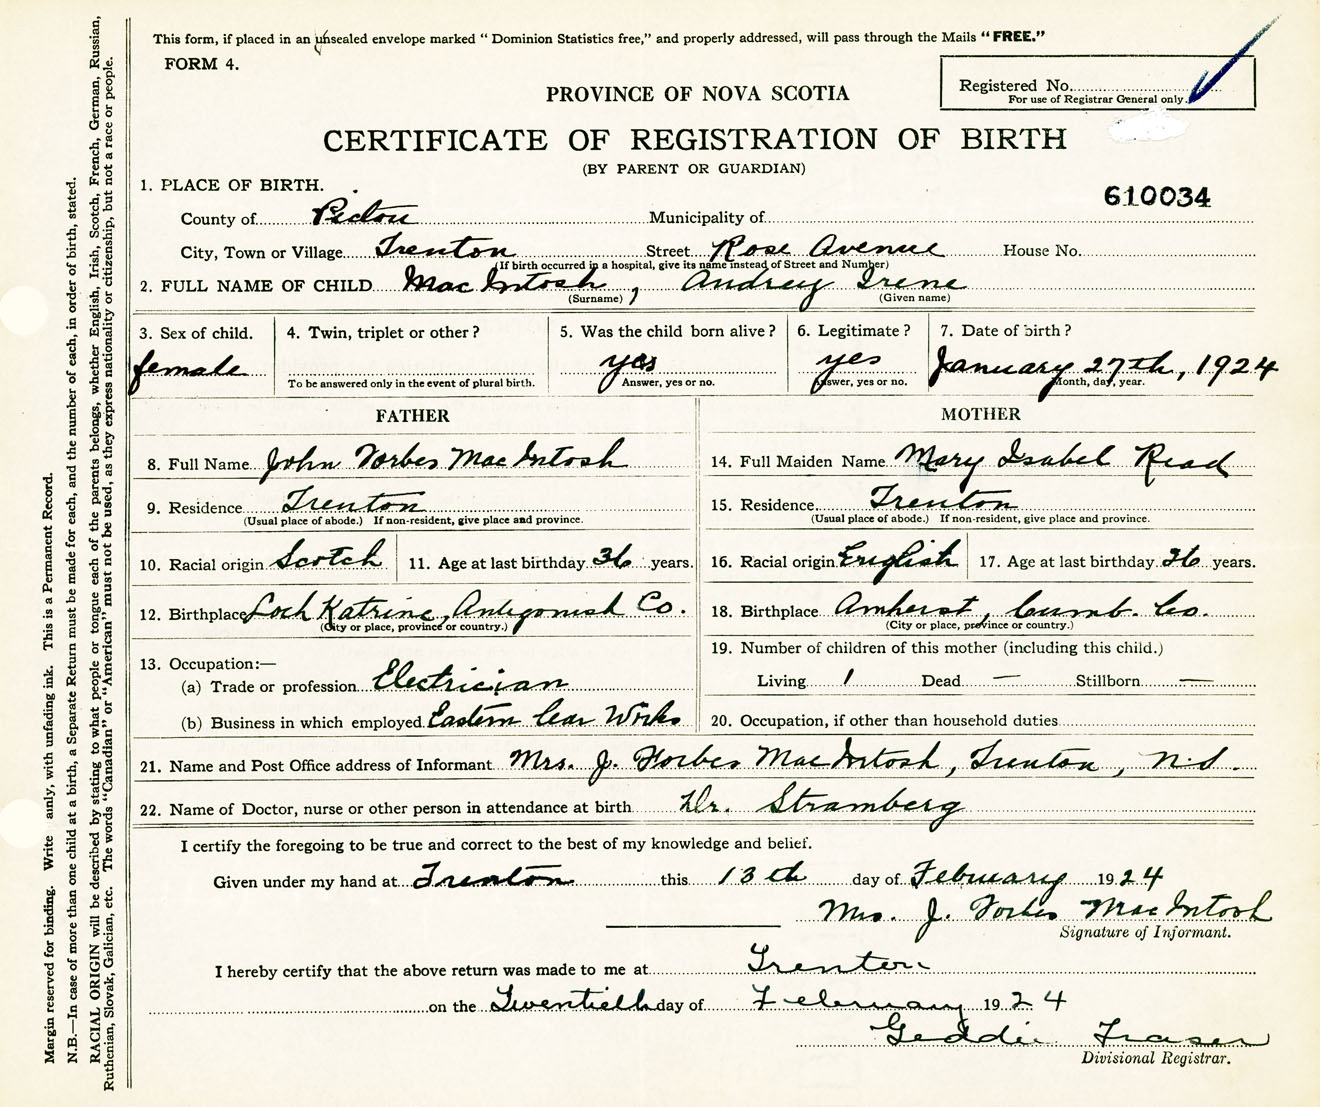 This form, if placed in an unsealed envelope marked “ Dominion Statistics free,” and properly addressed, will pass through the Mails “ FREE.”
FORM 4.
Registered No.
For use of Registrar General only.
PROVINCE OF NOVA SCOTIA
CERTIFICATE OF REGISTRATION OF BIRTH
(BY PARENT OR GUARDIAN)
610034
1. PLACE OF BIRTH.
County of Pictou Municipality of
City, Town or Village Trenton Street Rose Avenue House No.
(If birth occurred in a hospital, give its name instead of Street and Number)
2. FULL NAME OF CHILD MacIntosh, Audrey Irene
(Surname) (Given name)
3. Sex of child. 4. Twin, triplet or other ? 5. Was the child born alive ? 6. Legitimate ? 7. Date of birth ?
female yes yes January 27th, 1924
To be answered only in the event of plural birth. Answer, yes or no. Answer, yes or no. Month, day, year.
FATHER MOTHER
8. Full Name John Forbes MacIntosh 14. Full Maiden Name Mary Isabel Read
9. Residence Trenton 15. Residence Trenton
(Usual place of abode.) If non-resident, give place and province. (Usual place of abode.) If non-resident, give place and province.
10. Racial origin Scotch 11. Age at last birthday 36 years. 16. Racial origin English 17. Age at last birthday 26 years.
12. Birthplace Loch Katrine, Antigonish Co. 18. Birthplace Amherst, Cumb. Co.
(City or place, province or country.) (City or place, province or country.)
13. Occupation:— 19. Number of children of this mother (including this child.)
(a) Trade or profession Electrician Living 1 Dead — Stillborn —
(b) Business in which employed Eastern Car Works 20. Occupation, if other than household duties
21. Name and Post Office address of Informant Mrs. J. Forbes MacIntosh, Trenton, N.S.
22. Name of Doctor, nurse or other person in attendance at birth Dr. Stramberg
I certify the foregoing to be true and correct to the best of my knowledge and belief.
Given under my hand at Trenton this 13th day of February 1924
Mrs. J. Forbes MacIntosh
Signature of Informant.
I hereby certify that the above return was made to me at Trenton
on the Twentieth day of February 1924
Geddie Fraser
Divisional Registrar.
Margin reserved for binding. Write anly, with unfading ink. This is a Permanent Record.
N.B.—In case of more than one child at a birth, a Separate Return must be made for each, and the number of each, in order of birth, stated.
RACIAL ORIGIN will be described by stating to what people or tongue each of the parents belongs, whether English, Irish, Scotch, French, German, Russian,
Ruthenian, Slovak, Galician, etc. The words “Canadian” or “American” must not be used, as they express nationality or citizenship, but not a race or people.